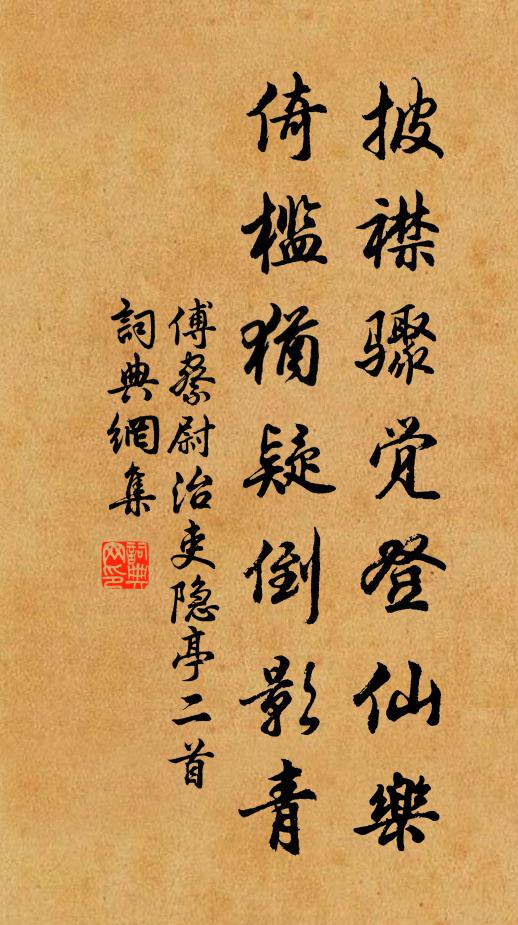 披襟骤觉登仙樂
倚槛猶疑倒影青
傅祭尉治吏隐亭二首
詞典網集
詞典网印